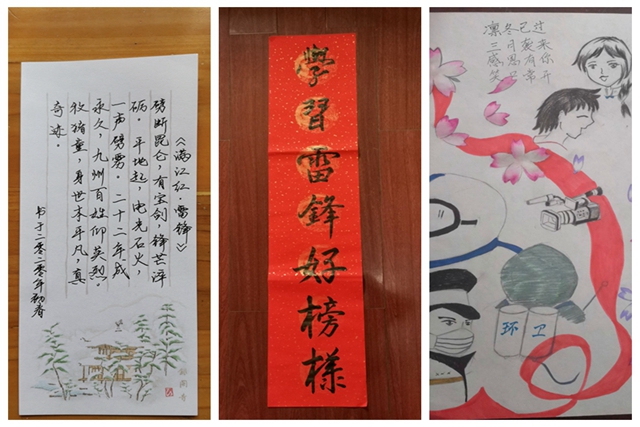 《满江红·雷锋》
劈断昆仑，有宝剑，锋芒淬
砺。平地起，电光石火，
一声劈雳。二十二年成
永久，九州百姓仰英烈。
牧猪童，身世本平凡，真
奇迹。
书于二零二零年初春
學習雷鋒好榜樣
凛冬已过
三月袭来
感恩有你
笑口常开
环卫